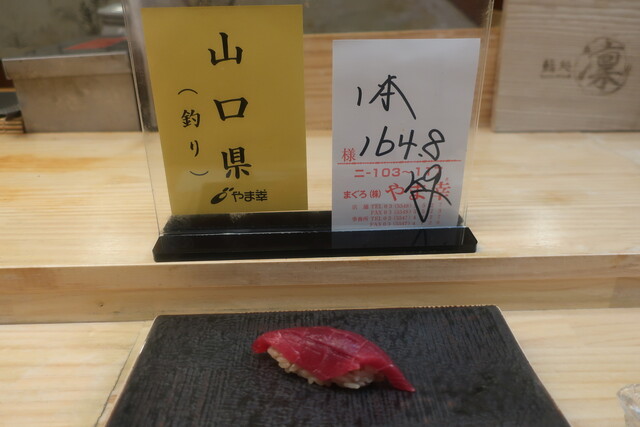 山口県
(釣り)
やま幸
1本
164.8
様
二-103~
まぐろ(株)やま幸
鮨処
凛